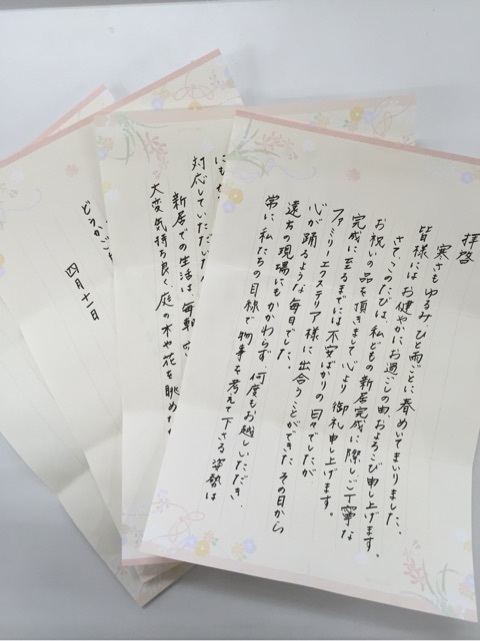 拝啓
寒さもゆるみ ひと雨ごとに 春めいてまいりました。
皆様には お健やかに お過ごしの由 およろこび申し上げます。
さて、このたびは、私どもの新居完成に際しご丁寧な
お祝いの品を頂きまして 心より 御礼申し上げます。
完成に至るまでには 不安ばかりの日々でしたが
ファミリーエクステリア様に出会うことができた その日から
心が踊るような 毎日でした。
遠方の現場にもかかわらず 何度もお越しいただき、
常に 私たちの目線で物事を考えて下さる 姿勢は
対応していただいた
新居での生活は、毎朝
大変気持ち良く、庭の木や花を眺めな
四月十一日